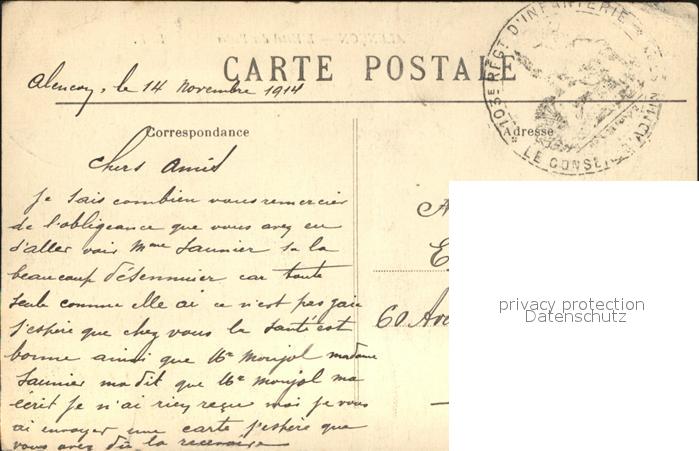 CARTE POSTALE
103e REGT D'INFANTERIE
LE CONSEIL D'ADMIN
Alençon, le 14 novembre 1914
Correspondance
Adresse
Chers Amis
je sais combien vous remercier
de l'obligeance que vous avez eu
d'aller voir Mme Saunier sa la
beaucoup désennuier car toute
seule comme elle ai ce n'est pas gaie
j'espère que chez vous la santé est
bonne ainsi que Mr Monjol madame
Saunier ma dit que Mr Monjol ma
écrit je n'ai rien reçue moi je vous
ai envoyer une carte j'espère que
vous avez dû la recevoire
60 Ave
privacy protection
Datenschutz